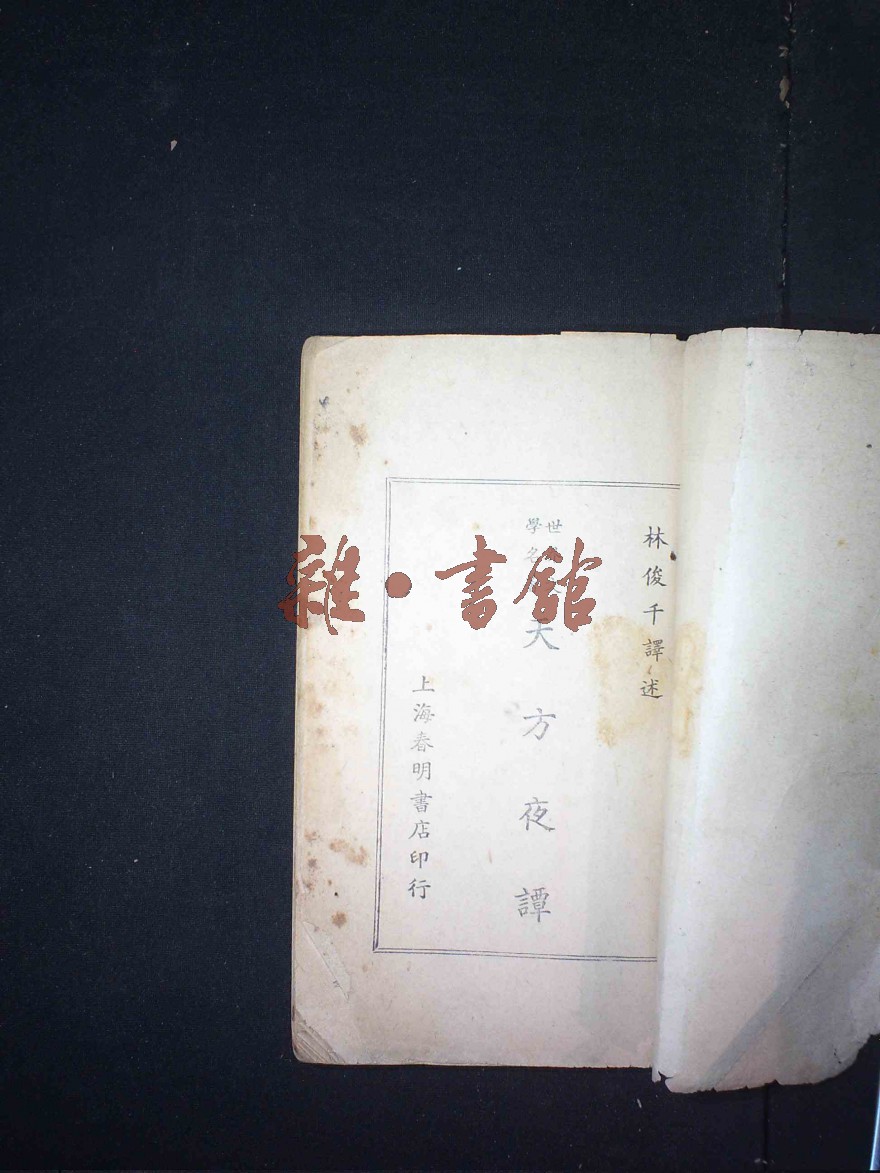 林俊千譯述
世
學名
大方夜譚
上海春明書店印行
雜•書館